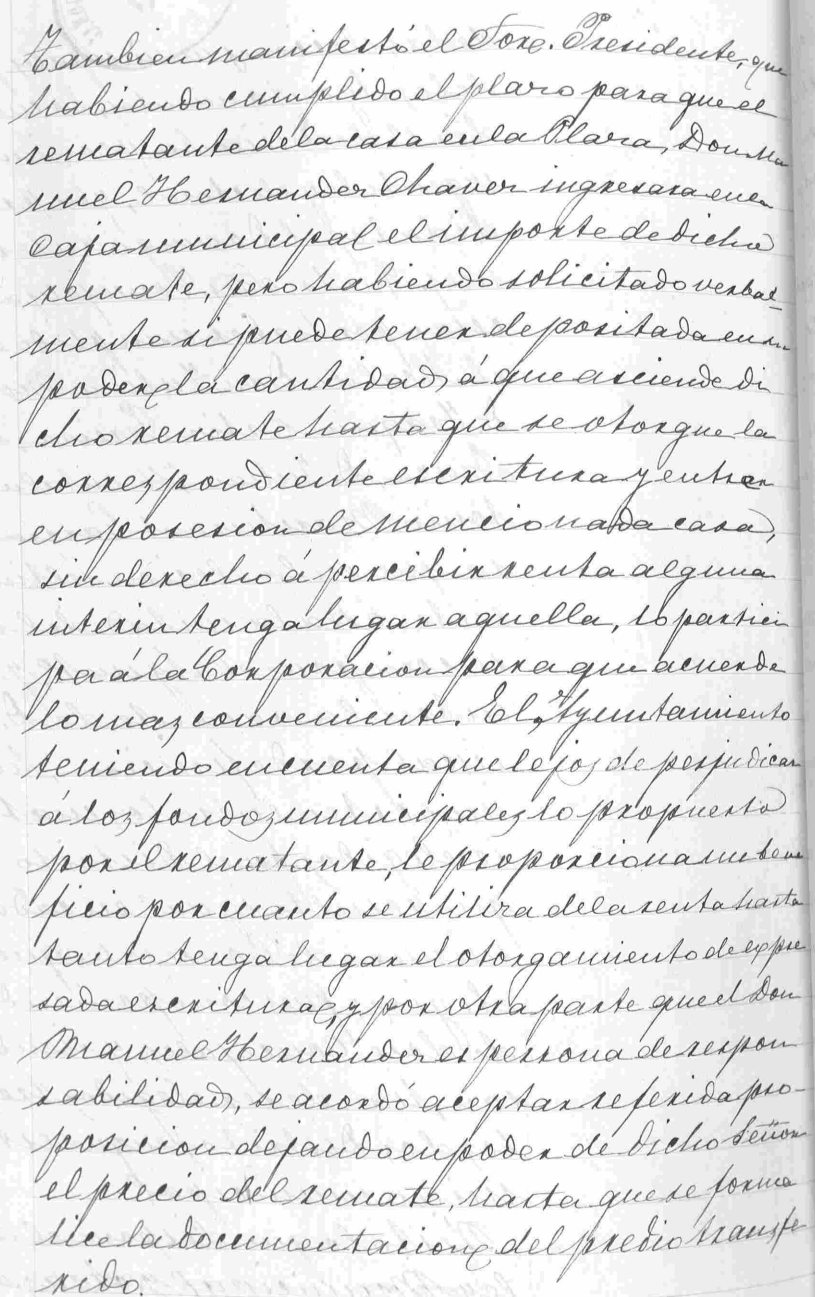 Tambien manifestó el Sor. Presidente, que
habiendo cumplido el plazo para que el
rematante de la casa en la Plaza, Don Ma
nuel Hernandez Chavez ingresara en la
Caja municipal el importe de dicho
remate, pero habiendo solicitado verbal-
mente si puede tener depositada en su
poder la cantidad á que asciende di
cho remate hasta que se otorgue la
correspondiente escritura y entrar
en posesion de mencionada casa,
sin derecho á percibir renta alguna
interin tenga lugar aquella, lo partici
pa á la Corporacion para que acuerde
lo mas conveniente. El Ayuntamiento
teniendo en cuenta que lejos de perjudicar
á los fondos municipales lo propuesto
por el rematante, le proporciona un bene
ficio por cuanto se utiliza de la renta hasta
tanto tenga lugar el otorgamiento de expre
sada escritura, y por otra parte que el Don
Manuel Hernández es persona de respon
sabilidad, se acordó aceptar referida pro-
posicion dejando en poder de dicho Señor
el precio del remate, hasta que se forma
lice la documentacion del predio transfe
rido.